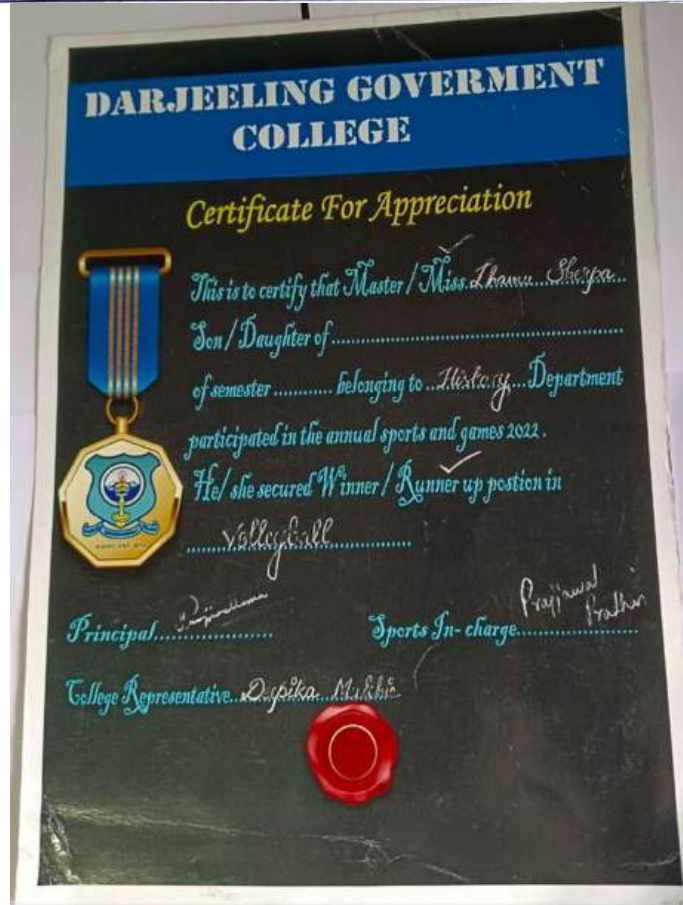 DARJEELING GOVERMENT
COLLEGE
Certificate For Appreciation
This is to certify that Master / Miss. Lhamu Sherpa
Son / Daughter of
of semester belonging to History Department
participated in the annual sports and games 2022.
He/ she secured Winner / Runner up postion in
Volleyball
Principal
Sports In- charge Prajjawal Pradhan
College Representative Depika